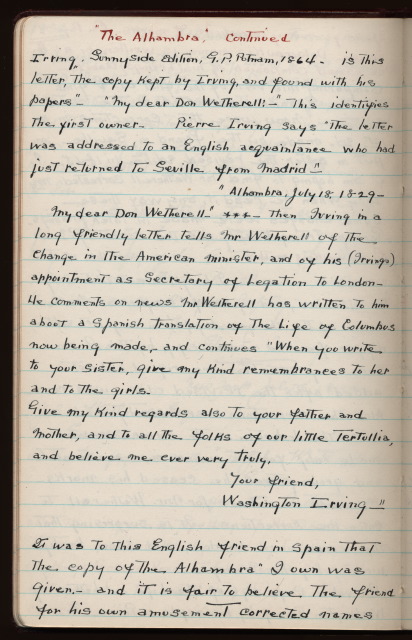 "The Alhambra", Continued
Irving, Sunnyside Edition, G.P. Putnam, 1864 - is this
letter, the copy kept by Irving, and found with his
papers" - "My dear Don Wetherell: -" This identifies
the first owner - Pierre Irving says "The letter
was addressed to an English acquaintance who had
just returned to Seville from Madrid"
"Alhambra, July 18, 1829 -
My dear Don Wetherell -" *** - Then Irving in a
long friendly letter tells Mr Wetherell of the
change in the American minister, and of his (Irvings)
appointment as Secretary of Legation to London -
He comments on news Mr Wetherell has written to him
about a Spanish translation of The Life of Columbus
now being made, and continues "When you write
to your sister, give my kind remembrances to her
and to the girls.
Give my kind regards also to your father and
mother, and to all the folks of our little Tertullia,
and believe me ever very truly,
Your friend,
Washington Irving - "
It was to this English friend in Spain that
the copy of the Alhambra" I own was
given - and it is fair to believe the friend
for his own amusement corrected names